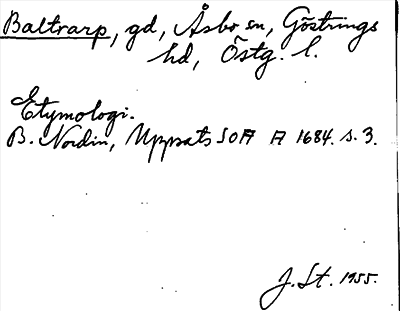 Baltrarp, gd, Åsbo sn, Göstrings
hd, Östg. l.
Etymologi.
B. Nordin, Uppsats SOA A 1684. s. 3.
J. St. 1955.